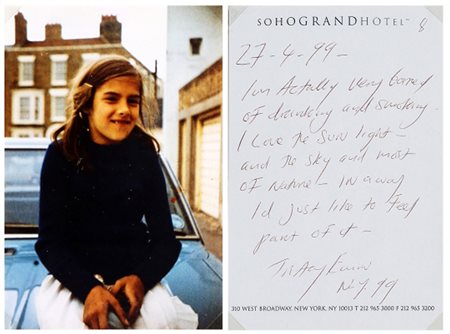 SOHOGRANDHOTEL™
8
27-4-99-
Im Actully Very bored
of drinking and smoking-
I Love the Sun light-
and the sky and most
of Nature- In a way
Id just like to feel
part of it-
Tracey Emin
N.Y. 99
310 WEST BROADWAY, NEW YORK, NY 10013 T 212 965 3000 F 212 965 3200